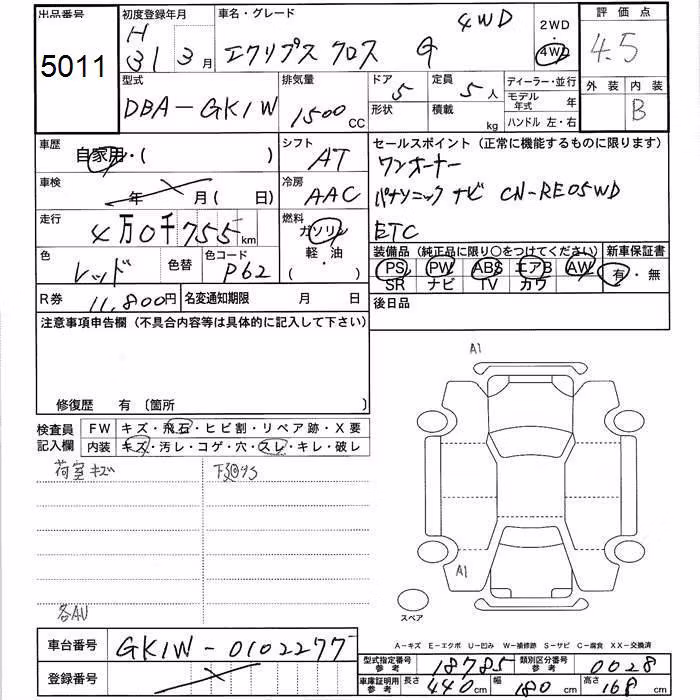 出品番号 初度登録年月 車名・グレード 評価点
5011 H 31 3月 エクリプス クロス G 4WD 2WD 4WD 4.5
型式 排気量 ドア 定員 ディーラー・並行 外装 内装
DBA-GK1W 1500 CC 5 5 人 モデル年式 年 B
形状 積載 kg ハンドル 左・右
車歴 自家用・( ) シフト AT セールスポイント (正常に機能するものに限ります)
ワンオーナー
車検 年 月 ( 日) 冷房 AAC パナソニック ナビ CN-RE05WD
走行 4万0千755km 燃料 ガソリン 軽・油 ( ・ ) ETC
色 レッド 色替 色コード P62 装備品 (純正品に限り○をつけてください) 新車保証書
PS PW ABS エアB AW 有・無
SR ナビ TV カワ
R券 11,800円 名変通知期限 月 日 後日品
注意事項申告欄 (不具合内容等は具体的に記入して下さい)
修復歴 有 〔箇所
検査員 FW キズ・飛石・ヒビ割・リペア跡・X要
記入欄 内装 キズ・汚レ・コゲ・穴・スレ・キレ・破レ
荷室キズ
各AU
A1
A1
スペア
A-キズ E-エクボ U-凹み W-補修跡 S-サビ C-腐食 XX-交換済
車台番号 GK1W-0102277
型式指定番号 参考 18785 類別区分番号 参考 0028
登録番号
車庫証明用 参考 長さ 440cm 幅 180cm 高さ 168cm